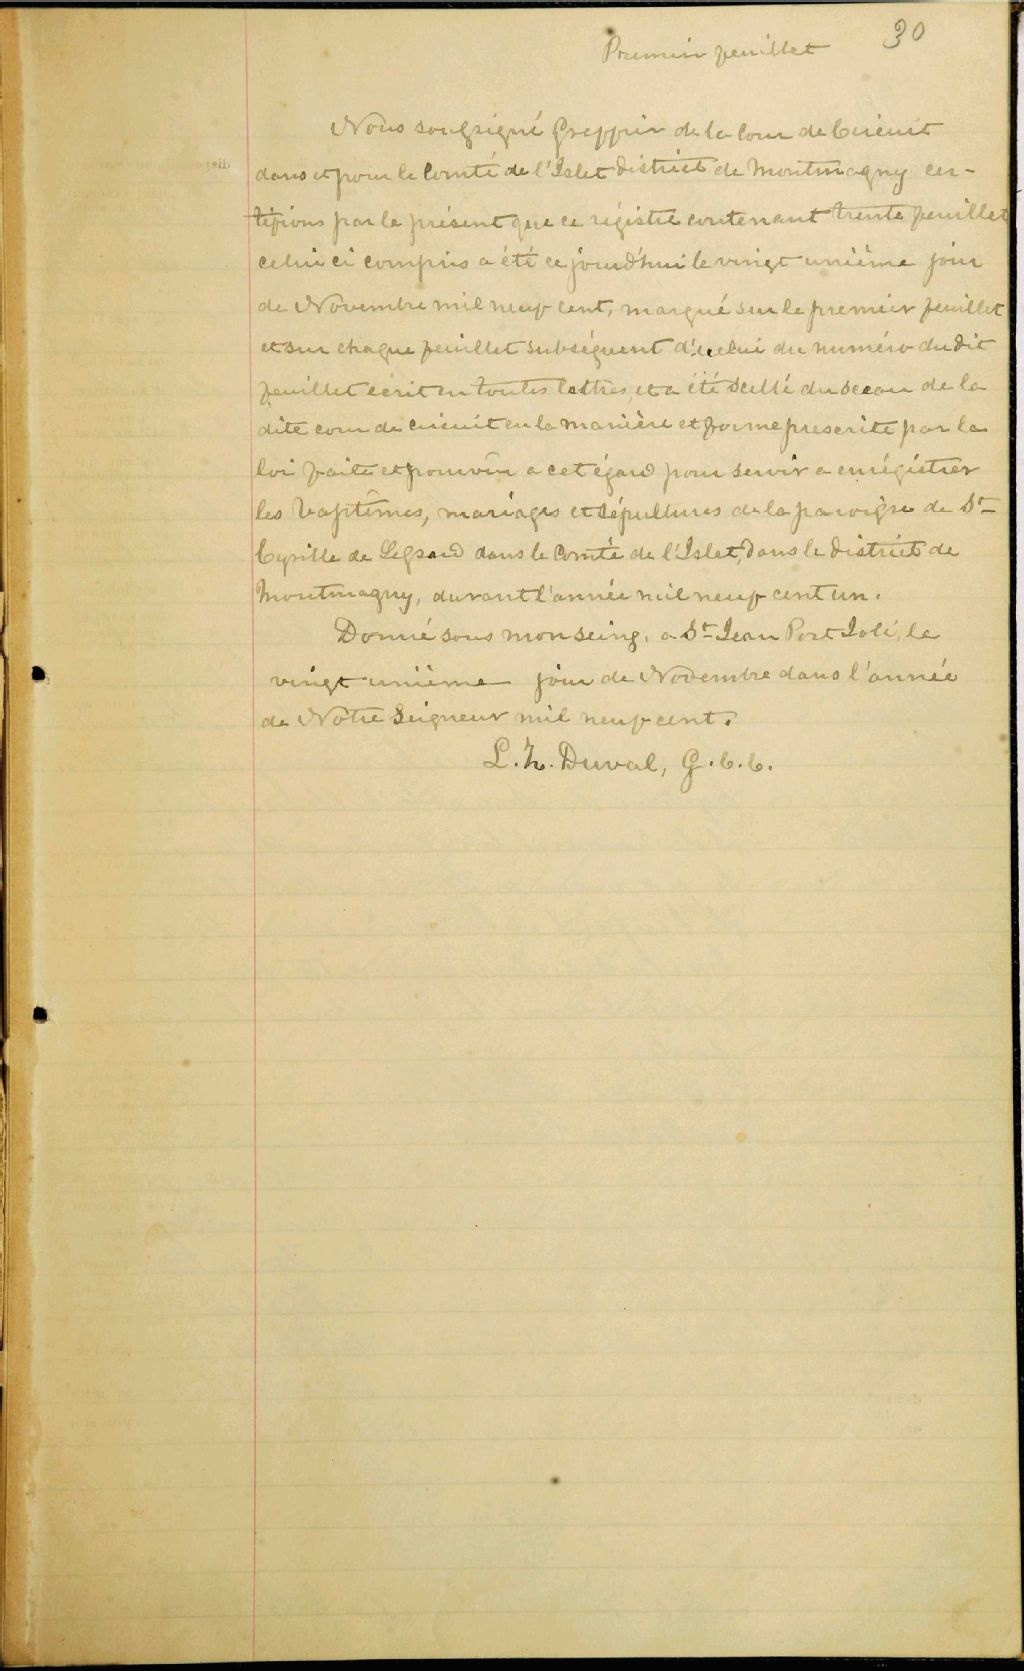 30
Premier feuillet
Nous soussigné Greffier de la Cour de Circuit
dans et pour le Comté de l'Islet District de Montmagny cer-
tifions par le présent que ce régistre contenant trente feuillet
celui ci compris a été ce jourd'hui le vingt unième jour
de Novembre mil neuf cent, marqué sur le premier feuillet
et sur chaque feuillet subséquent d'icelui du numéro du dit
feuillet écrit en toutes lettres, et a été scellé du sceau de la
dite cour de circuit en la manière et forme prescrite par la
loi faite et pourvûe a cet égard pour servir a enrégistrer
les baptêmes, mariages et sépultures de la paroisse de St
Cyrille de Lessard dans le Comté de l'Islet, dans le District de
Montmagny, durant l'année mil neuf cent un.
Donné sous mon seing, a St Jean Port Joli, le
vingt unième jour de Novembre dans l'année
de Notre Seigneur mil neuf cent.
L. Z. Duval, G. C. C.